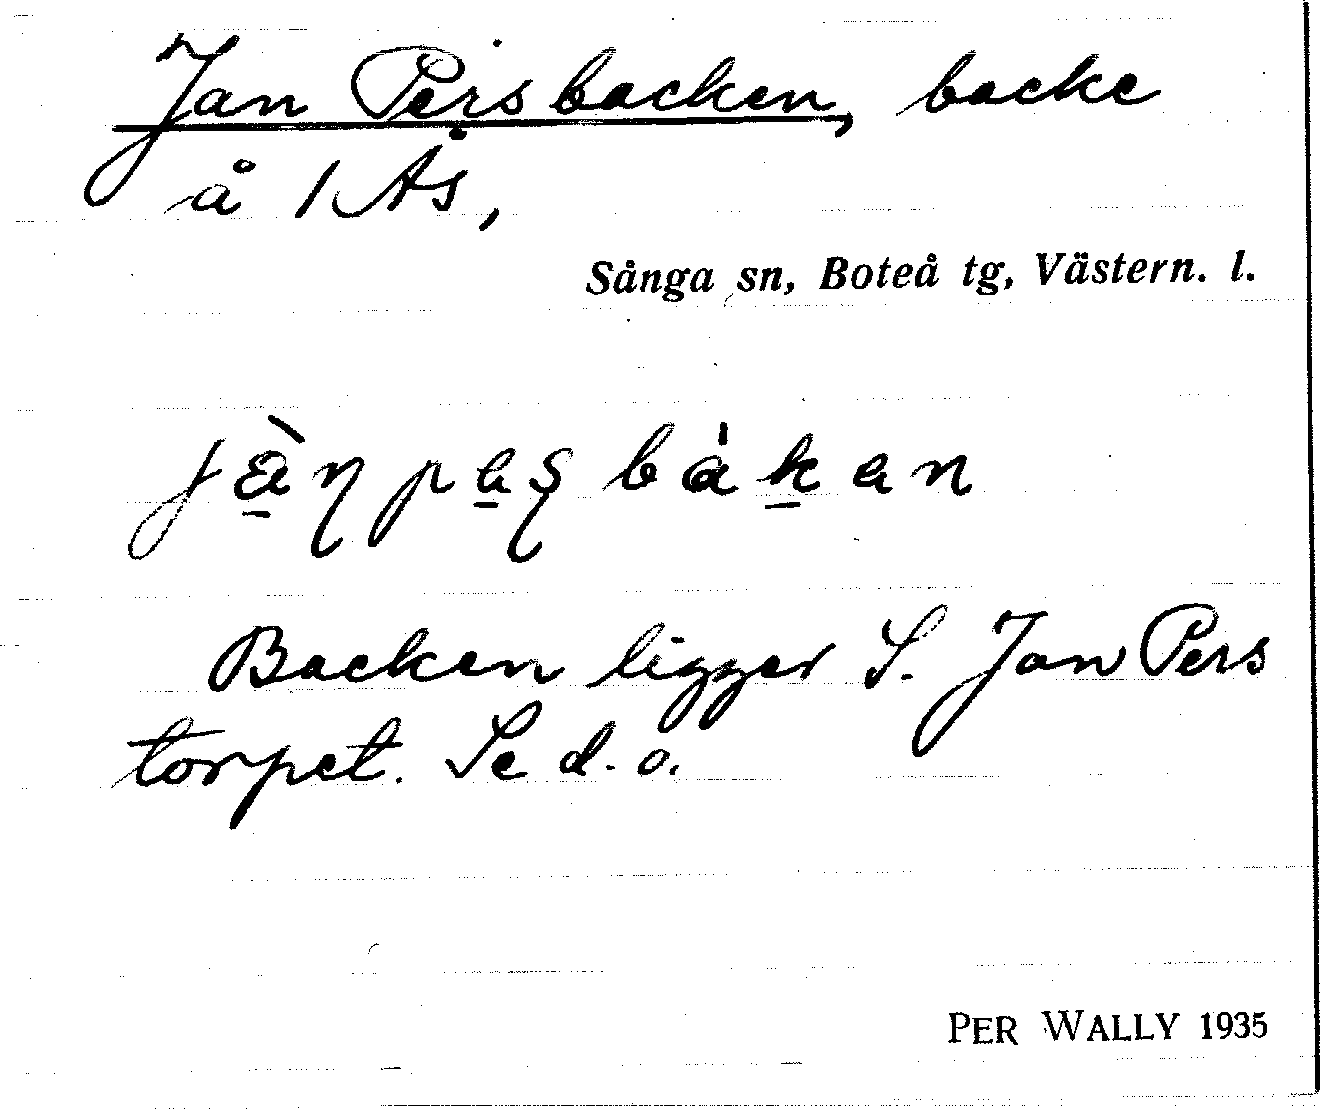 Jan Persbacken, backe
å 1 Ås,
Sånga sn, Boteå tg, Västern. l.
jàn̡pəʂbákən
Backen ligger S. Jan Pers
torpet. Se d. o.
PER WALLY 1935